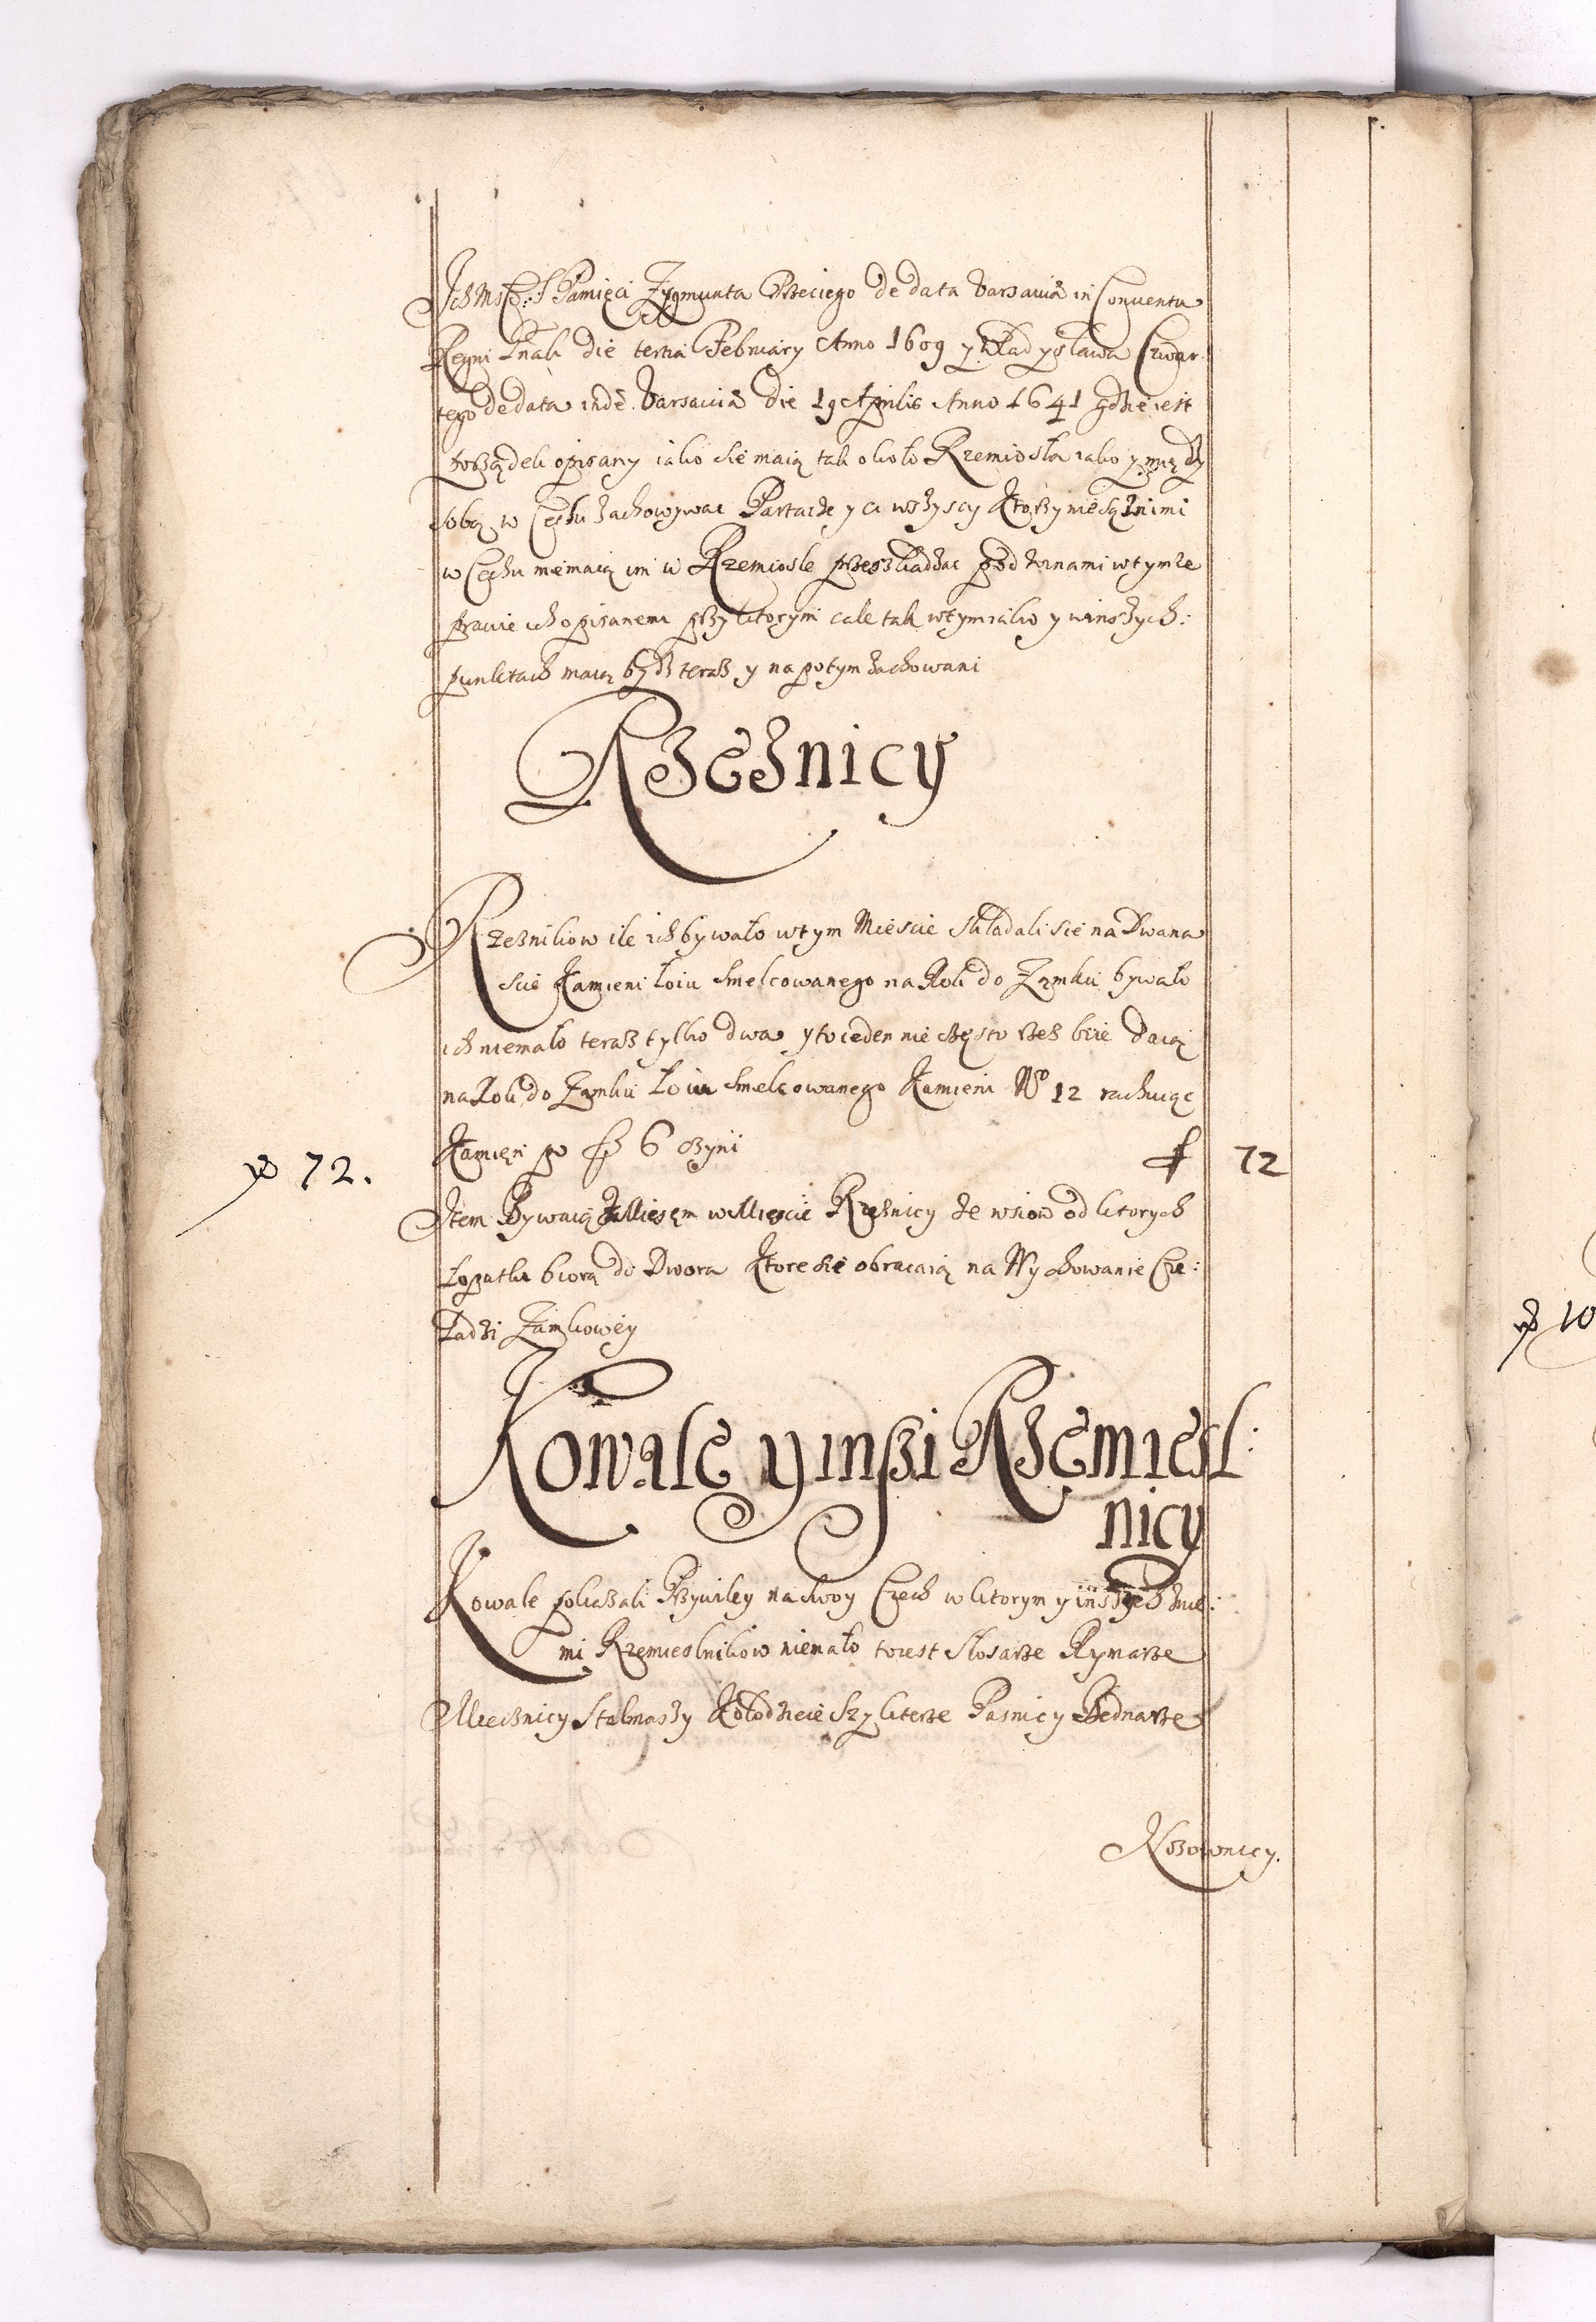 Ich Msc: S Pamięci Zygmunta Trzeciego de data Varsauiæ in Conuentu
Regni Gnali die tertia February Anno 1609 y Władysława Czwar
tego de data inde Varsauiæ die 19 Aprilis Anno 1641 gdzie iest
Porządek opisany iako sie maią tak około Rzemiosła iako y między
sobą w Cechu zachowywac Partacze y ci wszyscy Ktorzy nie są znimi
w Cechu niemaią im w Rzemiosle przeszkadzac pod winami wtymze
prawie ich opisanemi przy ktorym cale tak wtym iako y winszych:
punktach maią bydz teraz y napotym zachowani
Rzeznicy
Rzeznikow ile ich bywało wtym Miescie składali sie na Dwana
scie Kamieni łoiu smelcowanego na Rok do Zamku bywało
ich niemało teraz tylko dwa y to ieden nie często rzeze bcie Daią
na Rok do Zamku łoiu smelcowanego Kamieni No 12 rachuiąc
Kamięn po fl 6 czyni f 72
72.
Item Bywaią z Mięsęm w Miescie Rzeznicy ze wsiow od ktorych
łopatki biorą do Dwora Ktore sie obracaią na Wychowanie Cze:
ladzi Zamkowey
Kowale y inszi Rzemiesl:
nicy
Kowale pokazali Przywiley na swoy Czech w ktorym y inszych znie:
mi Rzemieslnikow niemało to iest Slosarze Rymarze
Miecznicy Stalmaszy Kołodzieie Szykterze Pasnicy Bednarze
Nozownicy.
10